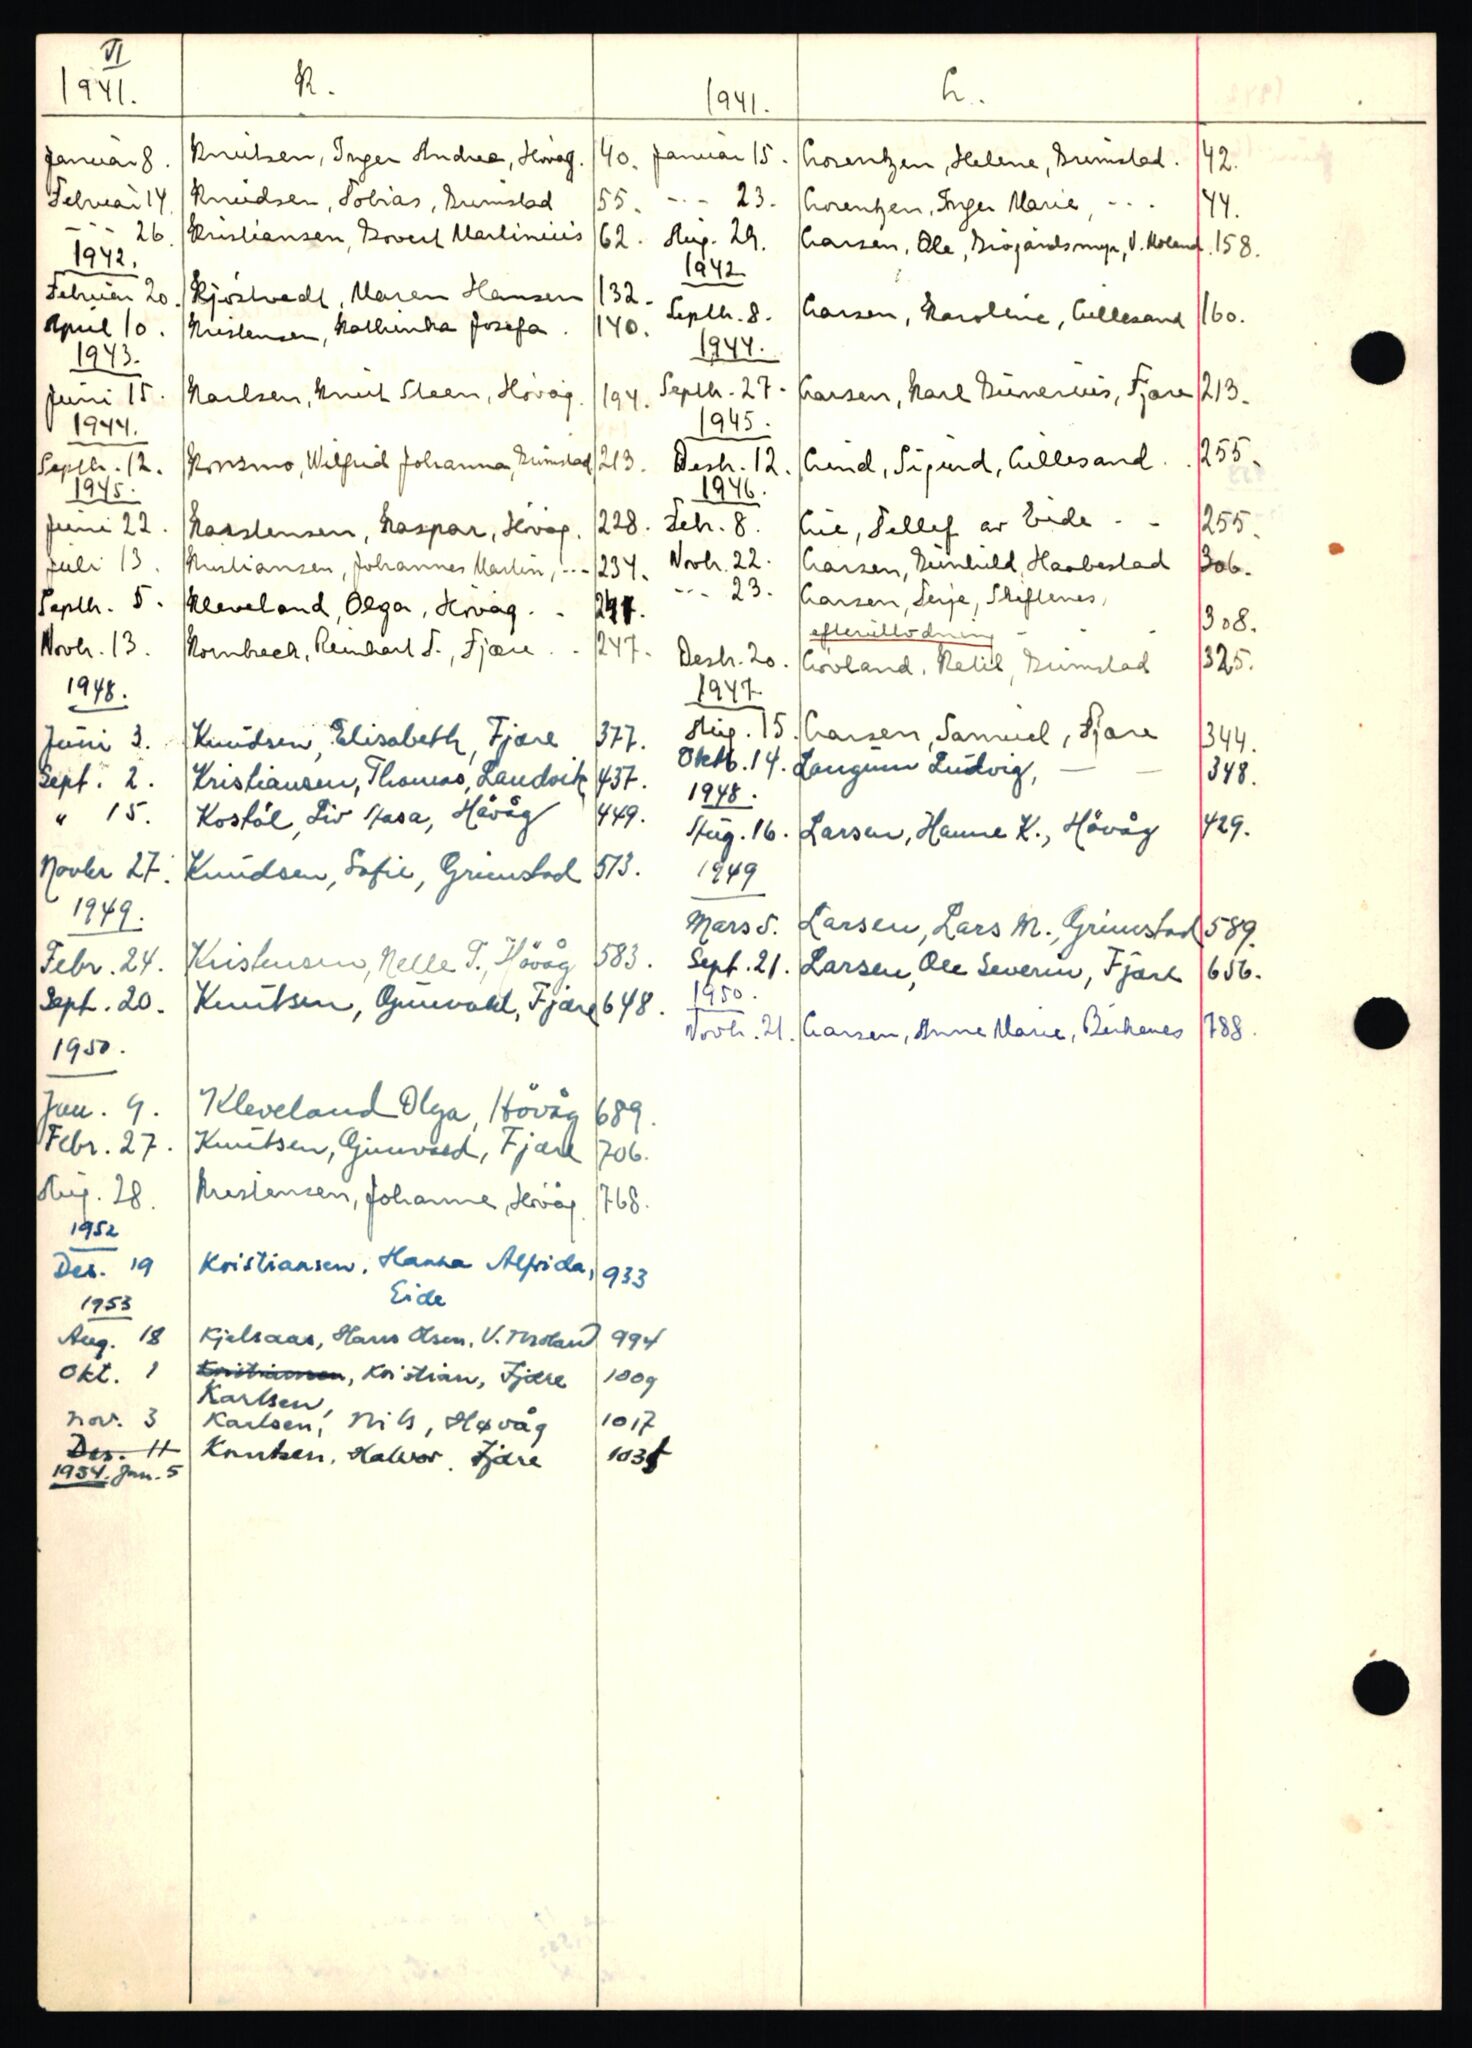 VI
1941. K.
Januar 8. Knutsen, Inger Andrea, Høvåg. 40.
Februar 14. Knudsen, Tobias, Grimstad 55.
- - - 26. Kristiansen, Govert Martinius 62.
1942.
Februar 20. Kjöstvedt, Maren Hansen 132.
April 10. Kristensen, Kathinka Josefa. 140.
1943.
Juni 15. Karlsen, Knut Steen, Høvåg. 194.
1944.
Septbr. 12. Korsmo, Wilfrid Johanna, Grimstad 213.
1945.
Juni 22. Karstensen, Kaspar, Høvåg. 228.
Juli 13. Kristiansen, Johannes Martin, - - - 234.
Septbr. 5. Kleveland, Olga, Høvåg. - 241.
Novbr. 13. Kornbrech, Reinhart T., Fjære. - 247.
1948.
Juni 3. Knudsen, Elisabeth, Fjære 377.
Sept. 2. Kristiansen, Thomas, Landvik 437.
" 15. Kostöl, Liv Aasa, Hövåg 449.
Novbr 27. Knudsen, Sofie, Grimstad 513.
1949.
Febr. 24. Kristensen, Nelle T., Hövåg 583.
Sept. 20. Knutsen, Gunvald, Fjære 648.
1950.
Jan. 9. Kleveland Olga, Hövåg 689.
Febr. 27. Knutsen, Gunvald, Fjære 706.
Aug. 28. Kristensen, Johanne, Høvåg. 768.
1952
Des. 19 Kristiansen, Hanna Alfrida, 933
Eide
1953
Aug. 18 Kjelsaas, Hans Olsen, V. Moland 994
Okt. 1 Kristiansen, Kristian, Fjære 1009
Karlsen,
Nov. 3 Karlsen, Nils, Høvåg 1017
Des. 11 Knutsen, Halvor. Fjære
1954. Jan. 5
1941. L.
Januar 15. Lorentzen, Helene, Grimstad. 42.
- - - 23. Lorentzen, Inger Marie, - - - 44.
Aug. 29. Larsen, Ole, V. Moland. 158.
1942
Septbr. 8. Larsen, Karoline, Lillesand 160.
1944.
Septbr. 27. Larsen, Karl Gunerius, Fjære 213.
1945.
Desbr. 12. Lind, Sigurd, Lillesand. . 255.
1946.
Febr. 8. Lie, Tellef av Eide - - 255.
Novbr. 22. Larsen, Gunhild, Haabestad 306.
- - - 23. Larsen, Terje, Skiftenes,
efterutlodning - - 308.
Desbr. 20. Lövland, Ketil, Grimstad 325.
1947
Aug. 15. Larsen, Samuel, Fjære 344.
Oktb. 14. Langum Ludvig, — — 348.
1948.
Aug. 16. Larsen, Hanne K., Hövåg 429.
1949
Mars 5. Larsen, Lars M., Grimstad 589.
Sept. 21. Larsen, Ole Severin, Fjære 656.
1950.
Novbr. 21. Larsen, Anne Marie, Birkenes 788.